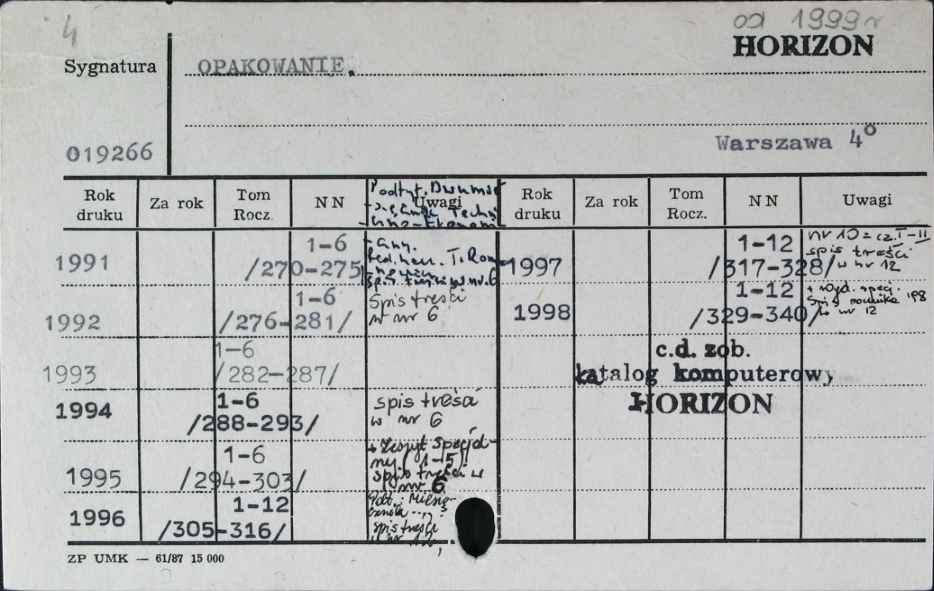 4
od 1999 r
HORIZON
Sygnatura
OPAKOWANIE.
019266
Warszawa 4°
Rok druku
Za rok
Tom Rocz.
NN
Uwagi
Rok druku
Za rok
Tom Rocz.
NN
Uwagi
Podtyt.
1991
1-6
/270-275
spis w nr 6
1992
1-6
/276-281/
Spis treści
w nr 6
1993
1-6
/282-287/
1994
1-6
/288-293/
spis treści
w nr 6
1995
1-6
/294-303/
+ Zeszyt Specjal-
ny (1-5)
spis treści w
nr 6
1996
1-12
/305-316/
spis treści
1997
1-12
/317-328/
nr 10 = cz. I-II
spis treści
w nr 12
1998
1-12
/329-340/
+ wyd. specj.
w nr 12
c.d. zob.
katalog komputerowy
HORIZON
ZP UMK — 61/87 15 000